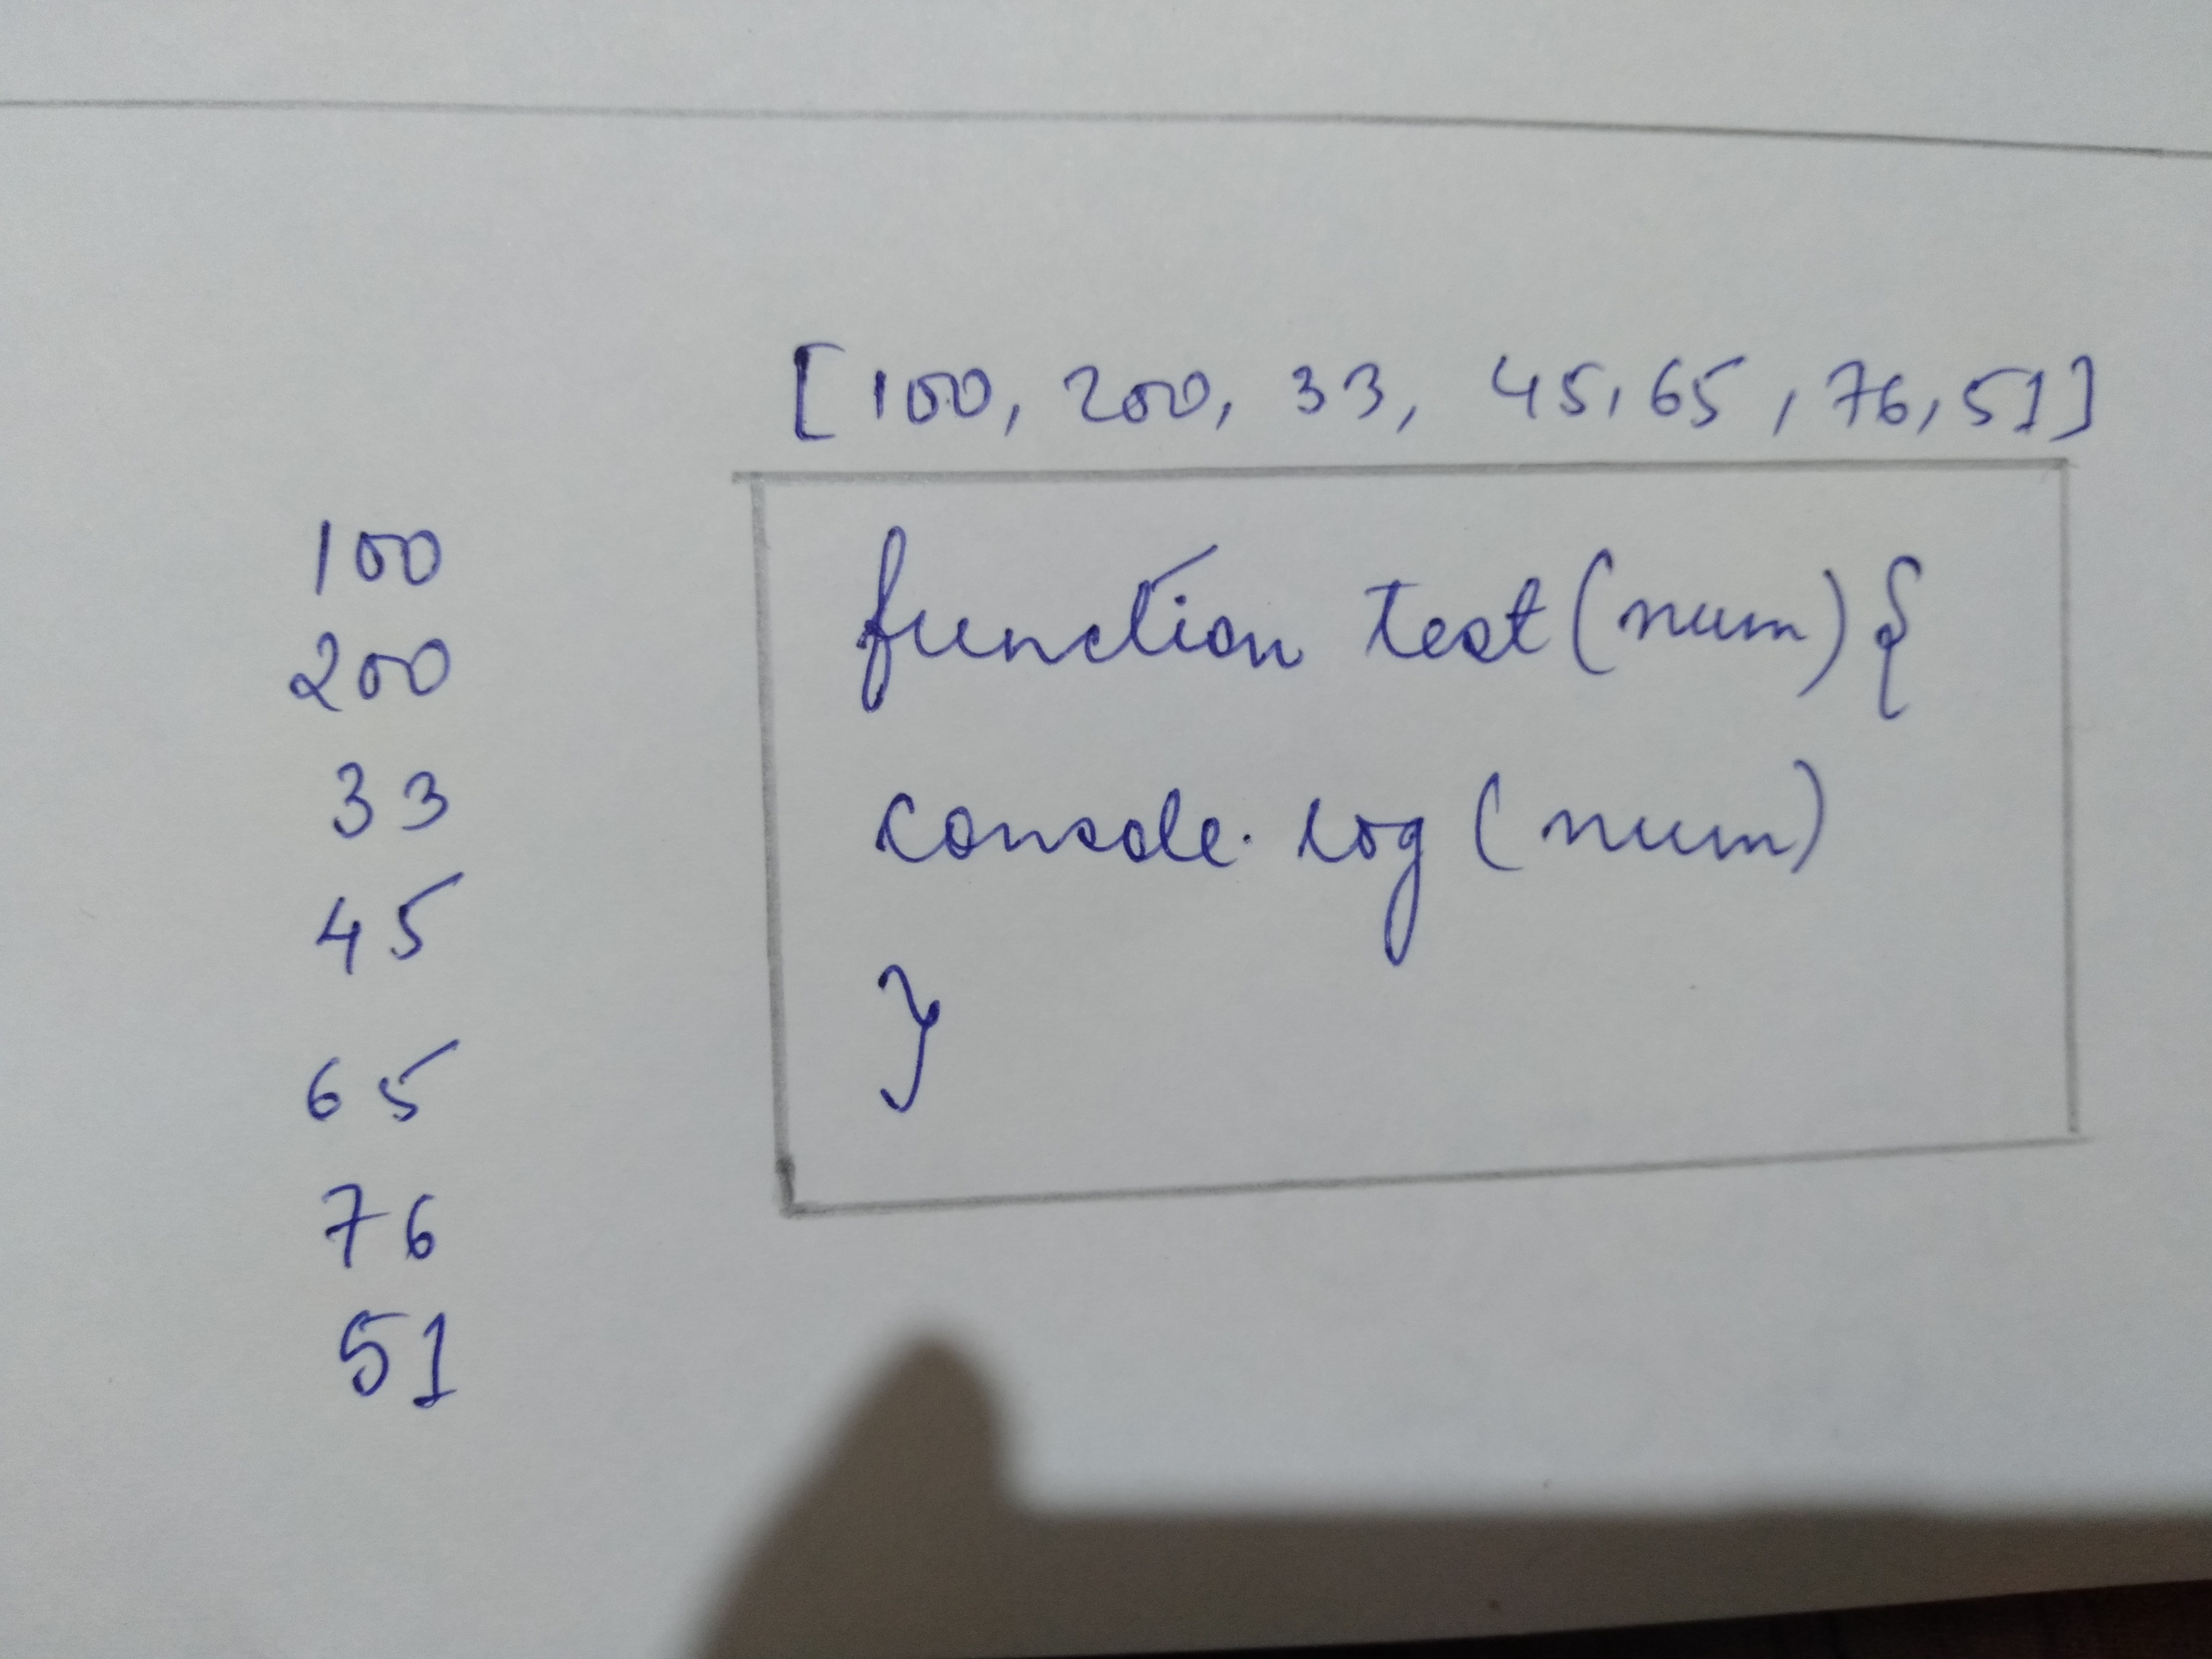 [100, 200, 33, 45, 65, 76, 51]
100
200
33
45
65
76
51
function test(num){
console.log(num)
}